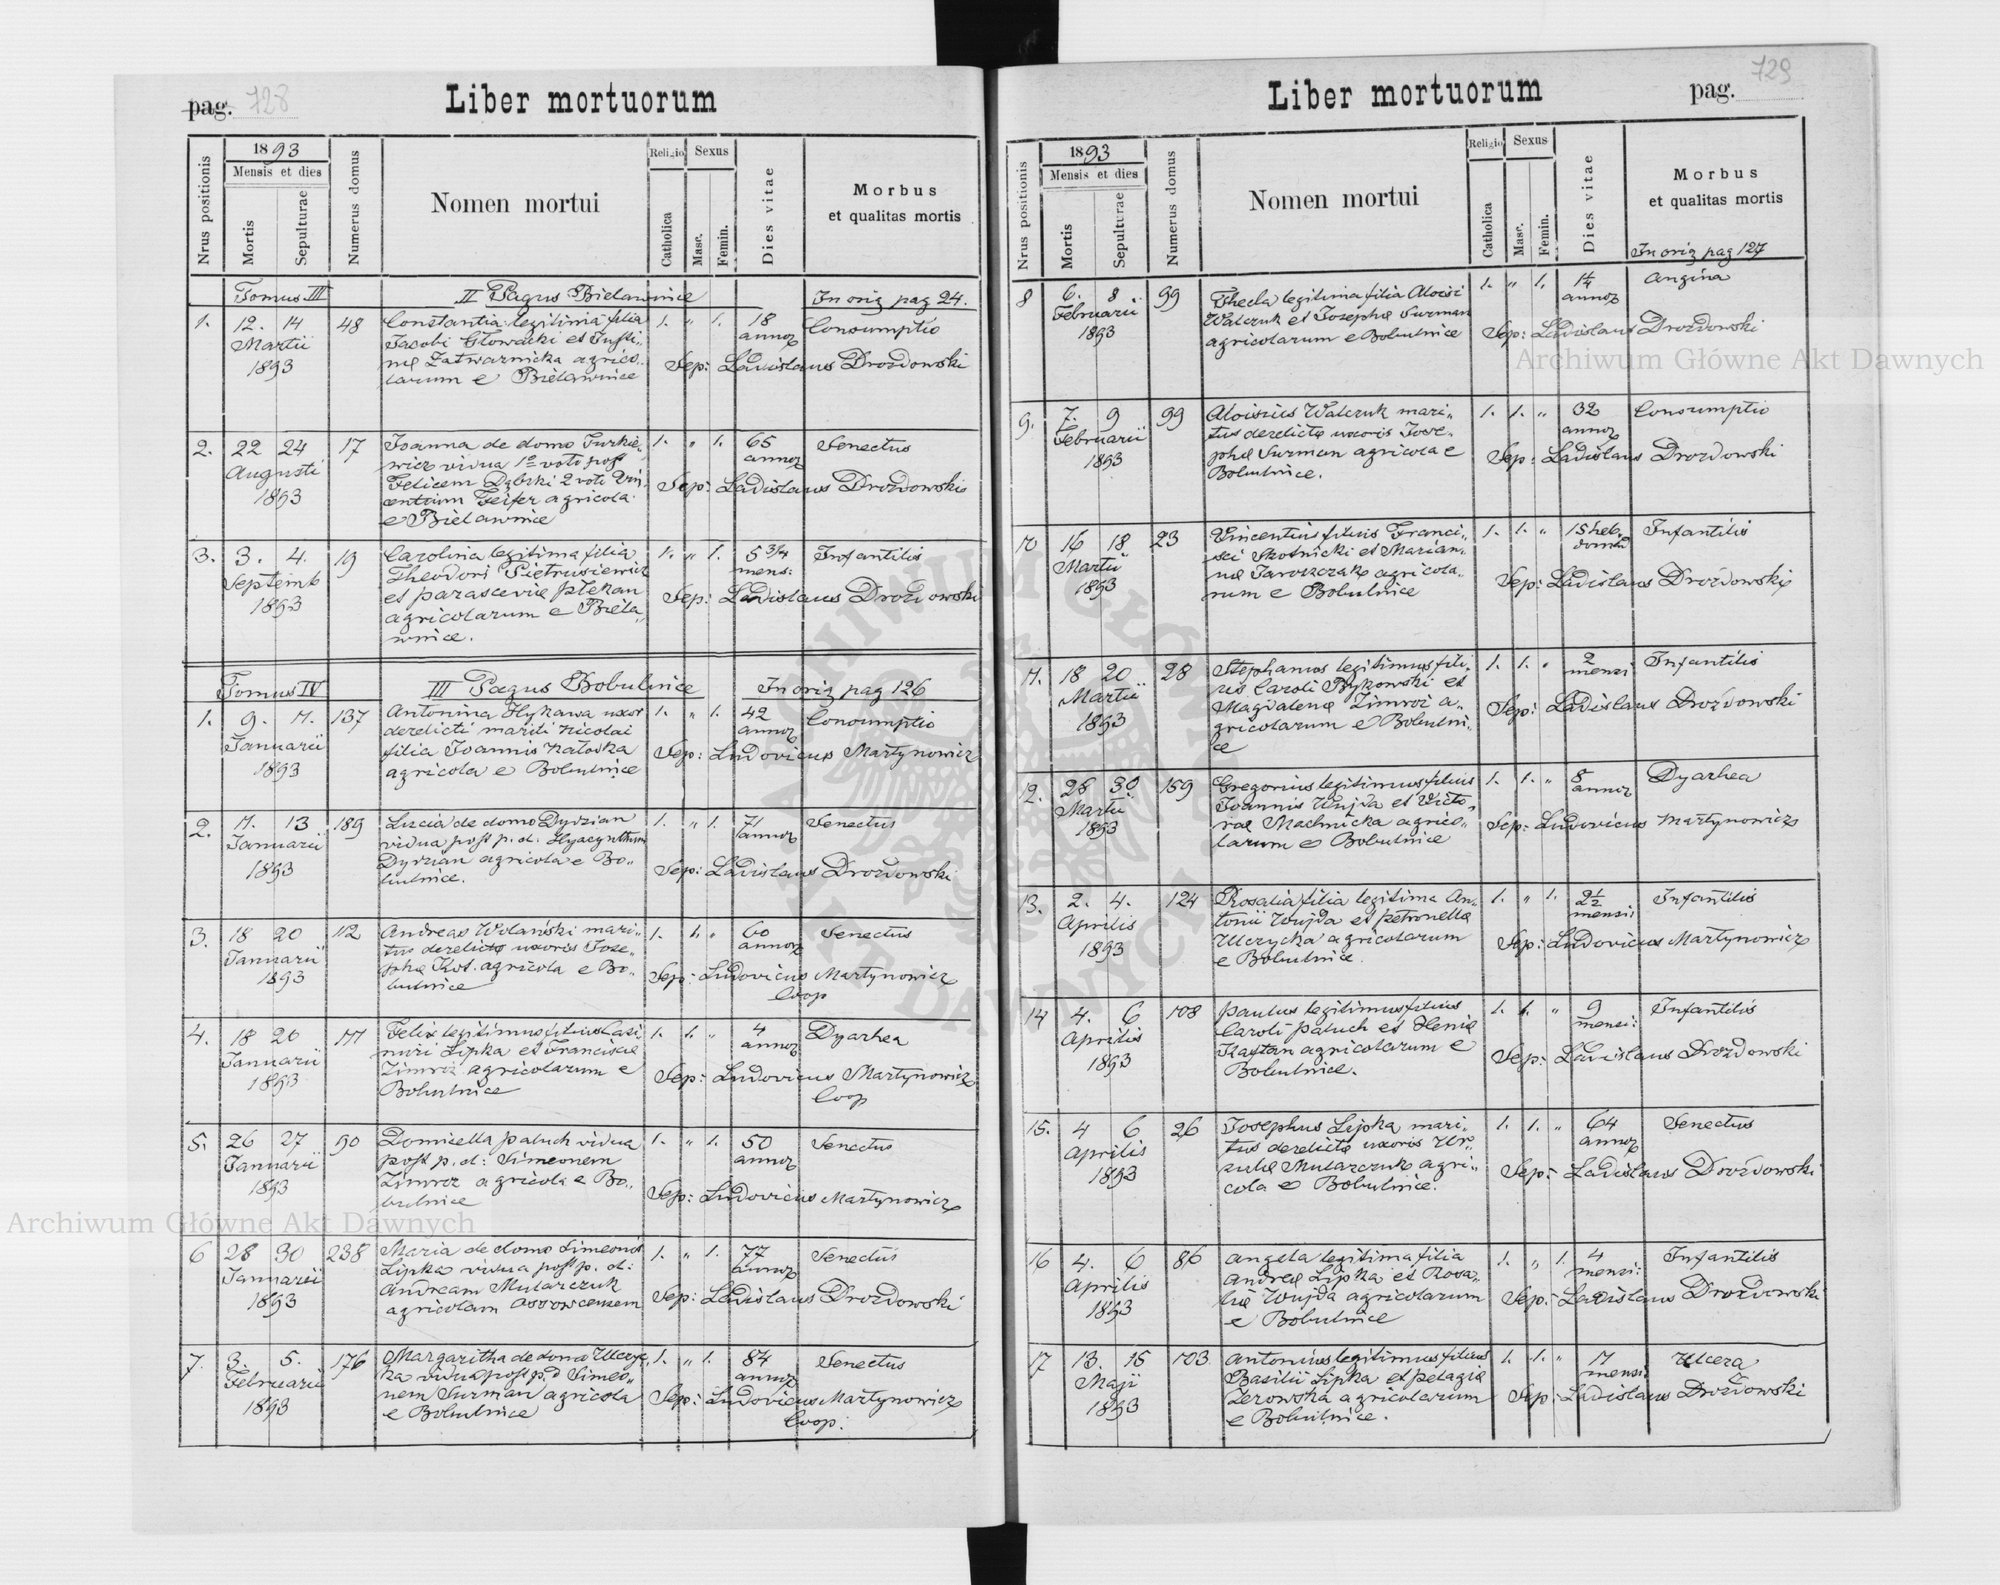 pag. 728
Liber mortuorum
Nrus positionis
1893
Mensis et dies
Mortis
Sepulturae
Numerus domus
Nomen mortui
Religio
Catholica
Sexus
Masc.
Femin.
Dies vitae
Morbus
et qualitas mortis
Tomus III II Pagus Bielawince In orig pag 24.
1. 12. 14 48 Constantia legitima filia 1. " 1. 18 Consumptio
Martii Jacobi Głowacki et Justi- annor
1893 nę Zatwarnicka agrico- Sep: Ladislaus Drozdowski
larum e Bielawince
2. 22 24 17 Joanna de domo Turkie- 1. " 1. 65 Senectus
Augusti wicz vidua 1º voti post annor
1893 Felicem Dąbski 2 voti Vin- Sep: Ladislaus Drozdowski
centium Feifer agricola
e Bielawince
3. 3. 4. 19 Carolina legitima filia 1. " 1. 5 3/4 Infantilis
Septemb Theodori Pietrusiewicz mens:
1893 et Parascevię Płekan Sep: Ladislaus Drozdowski
agricolarum e Biela-
wince.
Tomus IV III Pagus Bobulince In orig pag 126
1. 9. 11. 137 Antonina Hykawa uxor 1. " 1. 42 Consumptio
Januarii derelicti mariti Nicolai annor
1893 filia Joannis Kałaska Sep: Ludovicus Martynowicz
agricola e Bobulince
2. 11. 13 189 Lucia de domo Dyrzian 1. " 1. 71 Senectus
Januarii vidua post p. d. Hyacynthum annor
1893 Dyrzian agricola e Bo- Sep: Ladislaus Drozdowski
bulince.
3. 18 20 112 Andreas Wolański mari- 1. 1. " 60 Senectus
Januarii tus derelictę uxoris Jose- annor
1893 phę Kot. agricola e Bo- Sep: Ludovicus Martynowicz
bulince Coop
4. 18 20 177 Felix legitimus filius Casi- 1. 1. " 4 Dyarhea
Januarii miri Lipka et Franciscę annor
1893 Zimroz agricolarum e Sep: Ludovicus Martynowicz
Bobulince Coop
5. 26 27 90 Domicella Paluch vidua 1. " 1. 50 Senectus
Januarii post p. d: Simeonem annor
1893 Zimroz agricola e Bo- Sep: Ludovicus Martynowicz
bulince
6 28 30 238 Maria de domo Simeonis 1. " 1. 77 Senectus
Januarii Lipka vidua post p. d: annor
1893 Andream Mularczuk Sep: Ladislaus Drozdowski
agricolam
7. 3. 5. 176 Margaritha de domo Uczyc- 1. " 1. 84 Senectus
Februarii ka vidua post p. d Simeo- annor
1893 nem Surman agricola Sep: Ludovicus Martynowicz
e Bobulince Coop:
Liber mortuorum
pag. 729
Nrus positionis
1893
Mensis et dies
Mortis
Sepulturae
Numerus domus
Nomen mortui
Religio
Catholica
Sexus
Masc.
Femin.
Dies vitae
Morbus
et qualitas mortis
In orig pag 127
8 6. 8. 99 Thecla legitima filia Aloisi 1. " 1. 1 1/4 Angina
Februarii Walczuk et Josephę Surman annor
1893 agricolarum e Bobulince Sep: Ladislaus Drozdowski
9. 7. 9 99 Aloisius Walczuk mari- 1. 1. " 32 Consumptio
Februarii tus derelictę uxoris Jose- annor
1893 phę Surman agricola e Sep: Ladislaus Drozdowski
Bobulince.
10 16 18 23 Vincentius filius Franci- 1. 1. " 15 heb- Infantilis
Martii sci Skotnicki et Marian- domad
1893 nę Jaroszczak agricola- Sep: Ladislaus Drozdowski
rum e Bobulince
11. 18 20 28 Stephanus legitimus fili- 1. 1. " 2 Infantilis
Martii us Caroli Bykowski et mensi
1893 Magdalenę Zimroz a- Sep: Ladislaus Drozdowski
gricolarum e Bobulin-
ce
12. 28 30 159 Gregorius legitimus filius 1. 1. " 8 Dyarhea
Martii Joannis Wujda et Victo- annor
1893 rię Machnicka agrico- Sep: Ludovicus Martynowicz
larum e Bobulince
13. 2. 4. 124 Rosalia filia legitima An- 1. " 1. 2 1/2 Infantilis
Aprilis tonii Wujda et Petronellę mensi:
1893 Uczycka agricolarum Sep: Ludovicus Martynowicz
e Bobulince.
14 4. 6 108 Paulus legitimus filius 1. 1. " 9 Infantilis
Aprilis Caroli Paluch et Xenię mensi:
1893 Kaftan agricolarum e Sep: Ladislaus Drozdowski
Bobulince.
15. 4 6 26 Josephus Lipka mari- 1. 1. " 64 Senectus
Aprilis tus derelictę uxoris Ur- annor
1893 sulę Mularczuk agri- Sep: Ladislaus Drozdowski
cola e Bobulince.
16 4. 6 86 Angela legitima filia 1. " 1. 4 Infantilis
Aprilis Andreę Lipka et Rosa- mensi:
1893 lię Wujda agricolarum Sep: Ladislaus Drozdowski
e Bobulince
17 13. 15 103 Antonius legitimus filius 1. 1. " 11 Ulcera
Maji Basilii Lipka et Pelagię mensi
1893 Zerowska agricolarum Sep: Ladislaus Drozdowski
e Bobulince.
Archiwum Główne Akt Dawnych
Archiwum Główne Akt Dawnych
ARCHIWUM GŁÓWNE AKT DAWNYCH